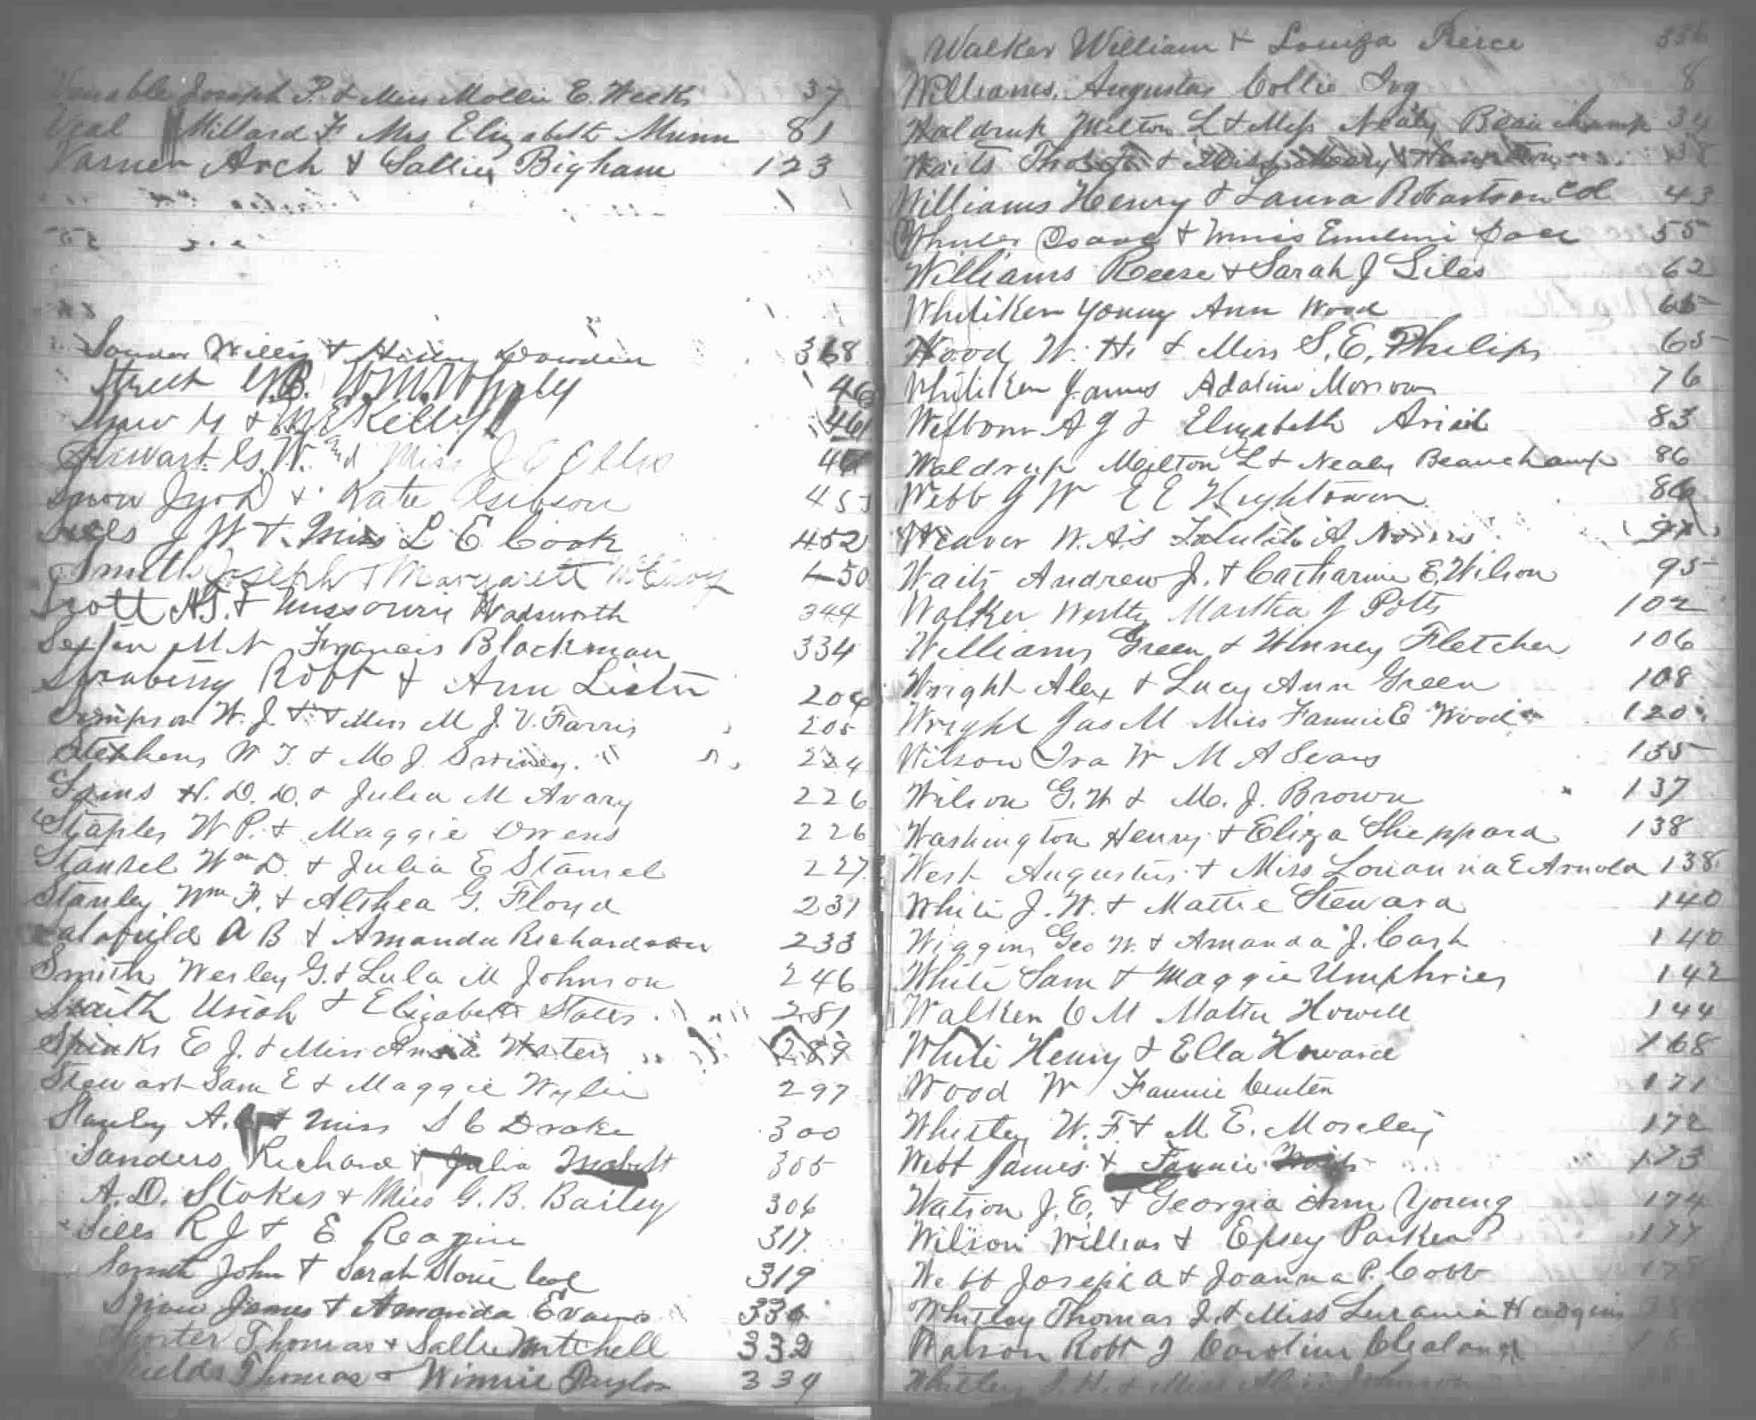 Venable Joseph P. & Miss Mollie E. Weeks 37
Veal Millard F Mrs Elizabeth Munn 81
Varner Arch & Sallie Bigham 123
Willis & Dowden 368
Street G.B. 46
Snow & M E Kelly 461
Stewart G. W. and Miss J E 46
Snow & Kate Gibson 453
Sills J W & Miss L E Cook 452
Smith Joseph W & Margarett McElroy 450
Scott A.J. & Missouri Wadsworth 344
Sexton M N Francis Blackman 334
Robt & Ann Lister 204
Simpson W. J. & Miss M J. V. Farris 205
Stephens W T. & M J. 224
Sams H. D. D. & Julia M Avary 226
Staples W P. & Maggie Owens 226
Stansel Wm D. & Julia E Stansel 227
Stanley Wm F. & Althea G. Floyd 231
A B & Amanda Richardson 233
Smith Wesley G. & Lula M Johnson 246
Smith Uriah & Elizabeth States 281
Spinks E J. & Miss Annie Waters 289
Stewart Sam E & Maggie Wylie 297
Stanley A. & Miss S C Drake 300
Sanders Richard & Julia 305
A. D. Stokes & Miss G. B. Bailey 306
Sills R J & E Ragin 317
Smith John & Sarah col 319
Snow James & Amanda Evans 330
Shorter Thomas & Sallie Mitchell 332
Shields Thomas & Winnie Taylor 339
Walker William & Louiza Peirce 336
Williams, Augustas Collie Ivy 8
Waldrup Milton L & Miss Nealy Beauchamp 34
Waits Thos & Miss Mary 38
Williams Henry & Laura Robartson Col 43
Isaac & Miss Emiline 55
Williams Reese & Sarah J Liles 62
Whitiker Young Ann Wood 65
Wood W. H. & Miss S. E. Philips 65
Whitiker James Adaline Morrow 76
A J & Elizabeth 83
Waldrup Milton L & Nealy Beauchamp 86
Webb J W E E Hightower 86
Weaver W. A. S A Norris 91
Waits Andrew J. & Catharine E. Wilson 95
Walker Westly Martha J Potts 102
Williams Green & Winney Fletcher 106
Wright Alex & Lucy Ann Green 108
Wright Jas M Miss Fannie E Wood 120
Wilson Ira W M A Sears 135
Wilson G. W & M. J. Brown 137
Washington Henry & Eliza Sheppard 138
West Augustus & Miss Louanna E Arnold 138
White J. W. & Mattie Steward 140
Wiggins Geo W. & Amanda J. Cash 140
White Sam & Maggie Umphries 142
Walker C M Mattie Howell 144
White Henry & Ella Howard 168
Wood W Fannie Center 171
Whitley W. F. & M E. Moseley 172
Webb James & Fannie 173
Watson J. E. & Georgia Ann Young 174
Wilson William & Epsey Parker 177
Webb Joseph A & Joanna P. Cobb 178
Whitley Thomas J. & Miss Lurania Hudgins
Watson Robt J Caroline Cleland
Whitley J. H. & Miss Johnson